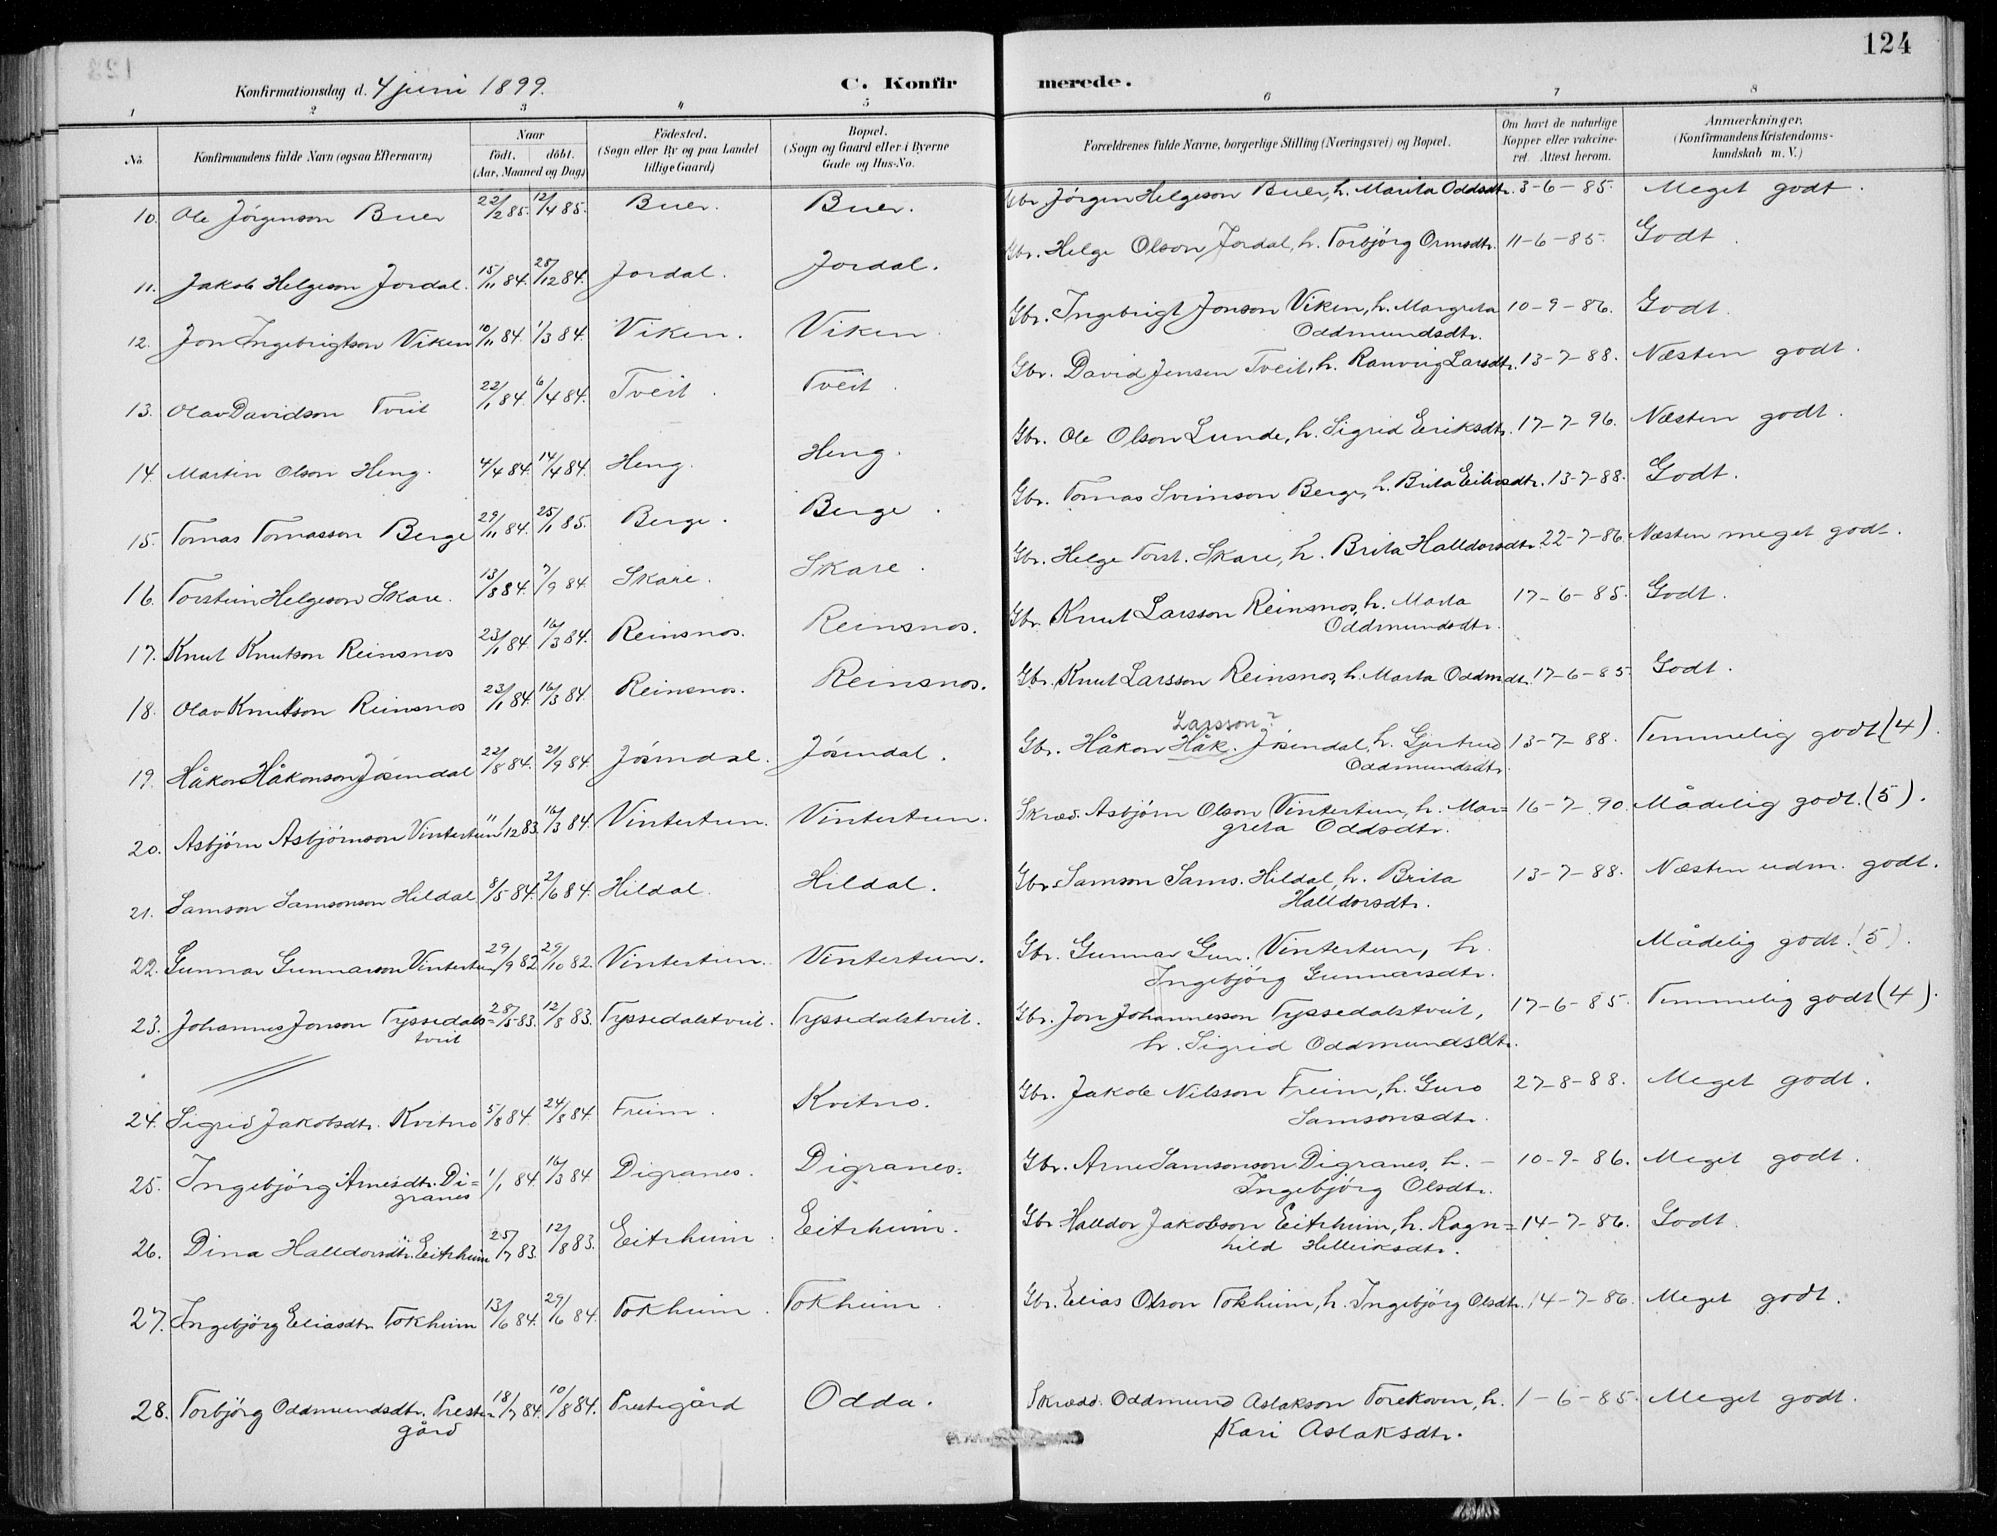 124
Konfirmationsdag d. 4 juni 1899.
C. Konfirmerede.
1 2 3 4 5 6 7 8
No. Konfirmandens fulde Navn (ogsaa Efternavn) Naar født. døbt. (Aar, Maaned og Dag) Fødested. (Sogn eller By og paa Landet tillige Gaard) Bopæl. (Sogn og Gaard eller i Byerne Gade og Hus-No. Forældrenes fulde Navne, borgerlige Stilling (Næringsvei) og Bopæl. Om havt de naturlige Kopper eller vakcineret. Attest herom. Anmærkninger. (Konfirmandens Kristendomskundskab m. V.)
10. Ole Jörgenson Buer 22/2 85. 12/4 85. Buer. Buer. Gbr. Jörgen Helgeson Buer, h. Marita Oddsdtr. 3-6-85. Meget godt.
11. Jakob Helgeson Jordal. 15/11 84. 28/12 84. Jordal. Jordal. Gbr. Helge Olson Jordal, h. Torbjörg Ormsdtr. 11-6-85. Godt.
12. Jon Ingebrigtson Viken 10/11 84. 1/3 84. Viken. Viken Gbr. Ingebrigt Jonson Viken, h. Margreta Oddmundsdtr. 10-9-86. Godt.
13. Olav Davidson Tveit 22/1 84. 6/4 84. Tveit. Tveit. Gbr. David Jensen Tveit, h. Ranveig Larsdtr. 13-7-88. Næsten godt.
14. Martin Olson Heng. 4/4 84. 14/4 84. Heng. Heng. Gbr. Ole Olson Lunde, h. Sigrid Eriksdtr. 17-7-96. Næsten godt.
15. Tomas Tomasson Berge 29/11 84. 25/1 85. Berge. Berge. Gbr. Tomas Sveinson Berge, h. Brita Eiliosdtr. 13-7-88. Godt.
16. Torstein Helgeson Skare. 13/8 84. 7/9 84. Skare. Skare. Gbr. Helge Torst. Skare, h. Brita Halldorsdtr. 22-7-86. Næsten meget godt.
17. Knut Knutson Reinsnos 23/1 84. 16/3 84. Reinsnos. Reinsnos. Gbr. Knut Larsson Reinsnos, h. Marta Oddmundsdtr. 17-6-85. Godt.
18. Olav Knutson Reinsnos 23/1 84. 16/3 84. Reinsnos. Reinsnos. Gbr. Knut Larsson Reinsnos, h. Marta Oddmdtr. 17-6-85. Godt.
Larsson?
19. Håkon Håkonson Jösendal 22/8 84. 21/9 84. Jösendal. Jösendal. Gbr. Håkon Håk. Jösendal, h. Gjertrud Oddmundsdtr. 13-7-88. Temmelig godt (4).
20. Asbjørn Asbjørnson Vintertun "/12 83. 16/3 84. Vintertun. Vintertun. Skræd. Asbjørn Olson Vintertun, h. Mar=greta Oddsdtr. 16-7-90. Mådelig godt. (5).
21. Samson Samsonson Hildal 8/5 84. 2/6 84. Hildal. Hildal. Gbr. Samson Sams. Hildal, h. Brita Halldorsdtr. 13-7-88. Næsten udm. godt.
22. Gunnar Gunnarson Vintertun 29/9 82. 29/10 82. Vintertun. Vintertun. Gbr. Gunnar Gun. Vintertun, h. Ingebjörg Gunnarsdtr. Mådelig godt. (5).
23. Johannes Jonson Tyssedals=tveit 28/5 83. 12/8 83. Tyssedalstveit. Tyssedalstveit. Gbr. Jon Johannesson Tyssedalstveit, h. Sigrid Oddmundsdtr. 17-6-85. Temmelig godt (4).
24. Sigrid Jakobsdtr. Kvitno 5/8 84. 24/8 84. Freim. Kvitno. Gbr. Jakob Nilsson Freim, h. Guro Samsonsdtr. 27-8-88. Meget godt.
25. Ingebjörg Arnesdtr. Di=granes 1/1 84. 16/3 84 Digranes. Digranes. Gbr. Arne Samsonson Digranes, h. - Ingebjörg Olsdtr. 10-9-86. Meget godt.
26. Dina Halldorsdtr. Eitrheim 25/7 83. 12/8 83. Eitrheim. Eitrheim. Gbr. Halldor Jakobson Eitrheim, h. Ragn=hild Helleiksdtr. 14-7-86. Godt.
27. Ingebjörg Eliasdtr. Tokheim 13/6 84. 29/6 84. Tokheim. Tokheim. Gbr. Elias Olson Tokheim, h. Ingebjörg Olsdtr. 14-7-86. Meget godt.
28. Torbjörg Oddmundsdtr. Preste=gård 18/7 84. 10/8 84. Prestegård Odda. Skrædd. Oddmund Aslakson Torekoven, h. Kari Aslaksdtr. 1-6-85. Meget godt.